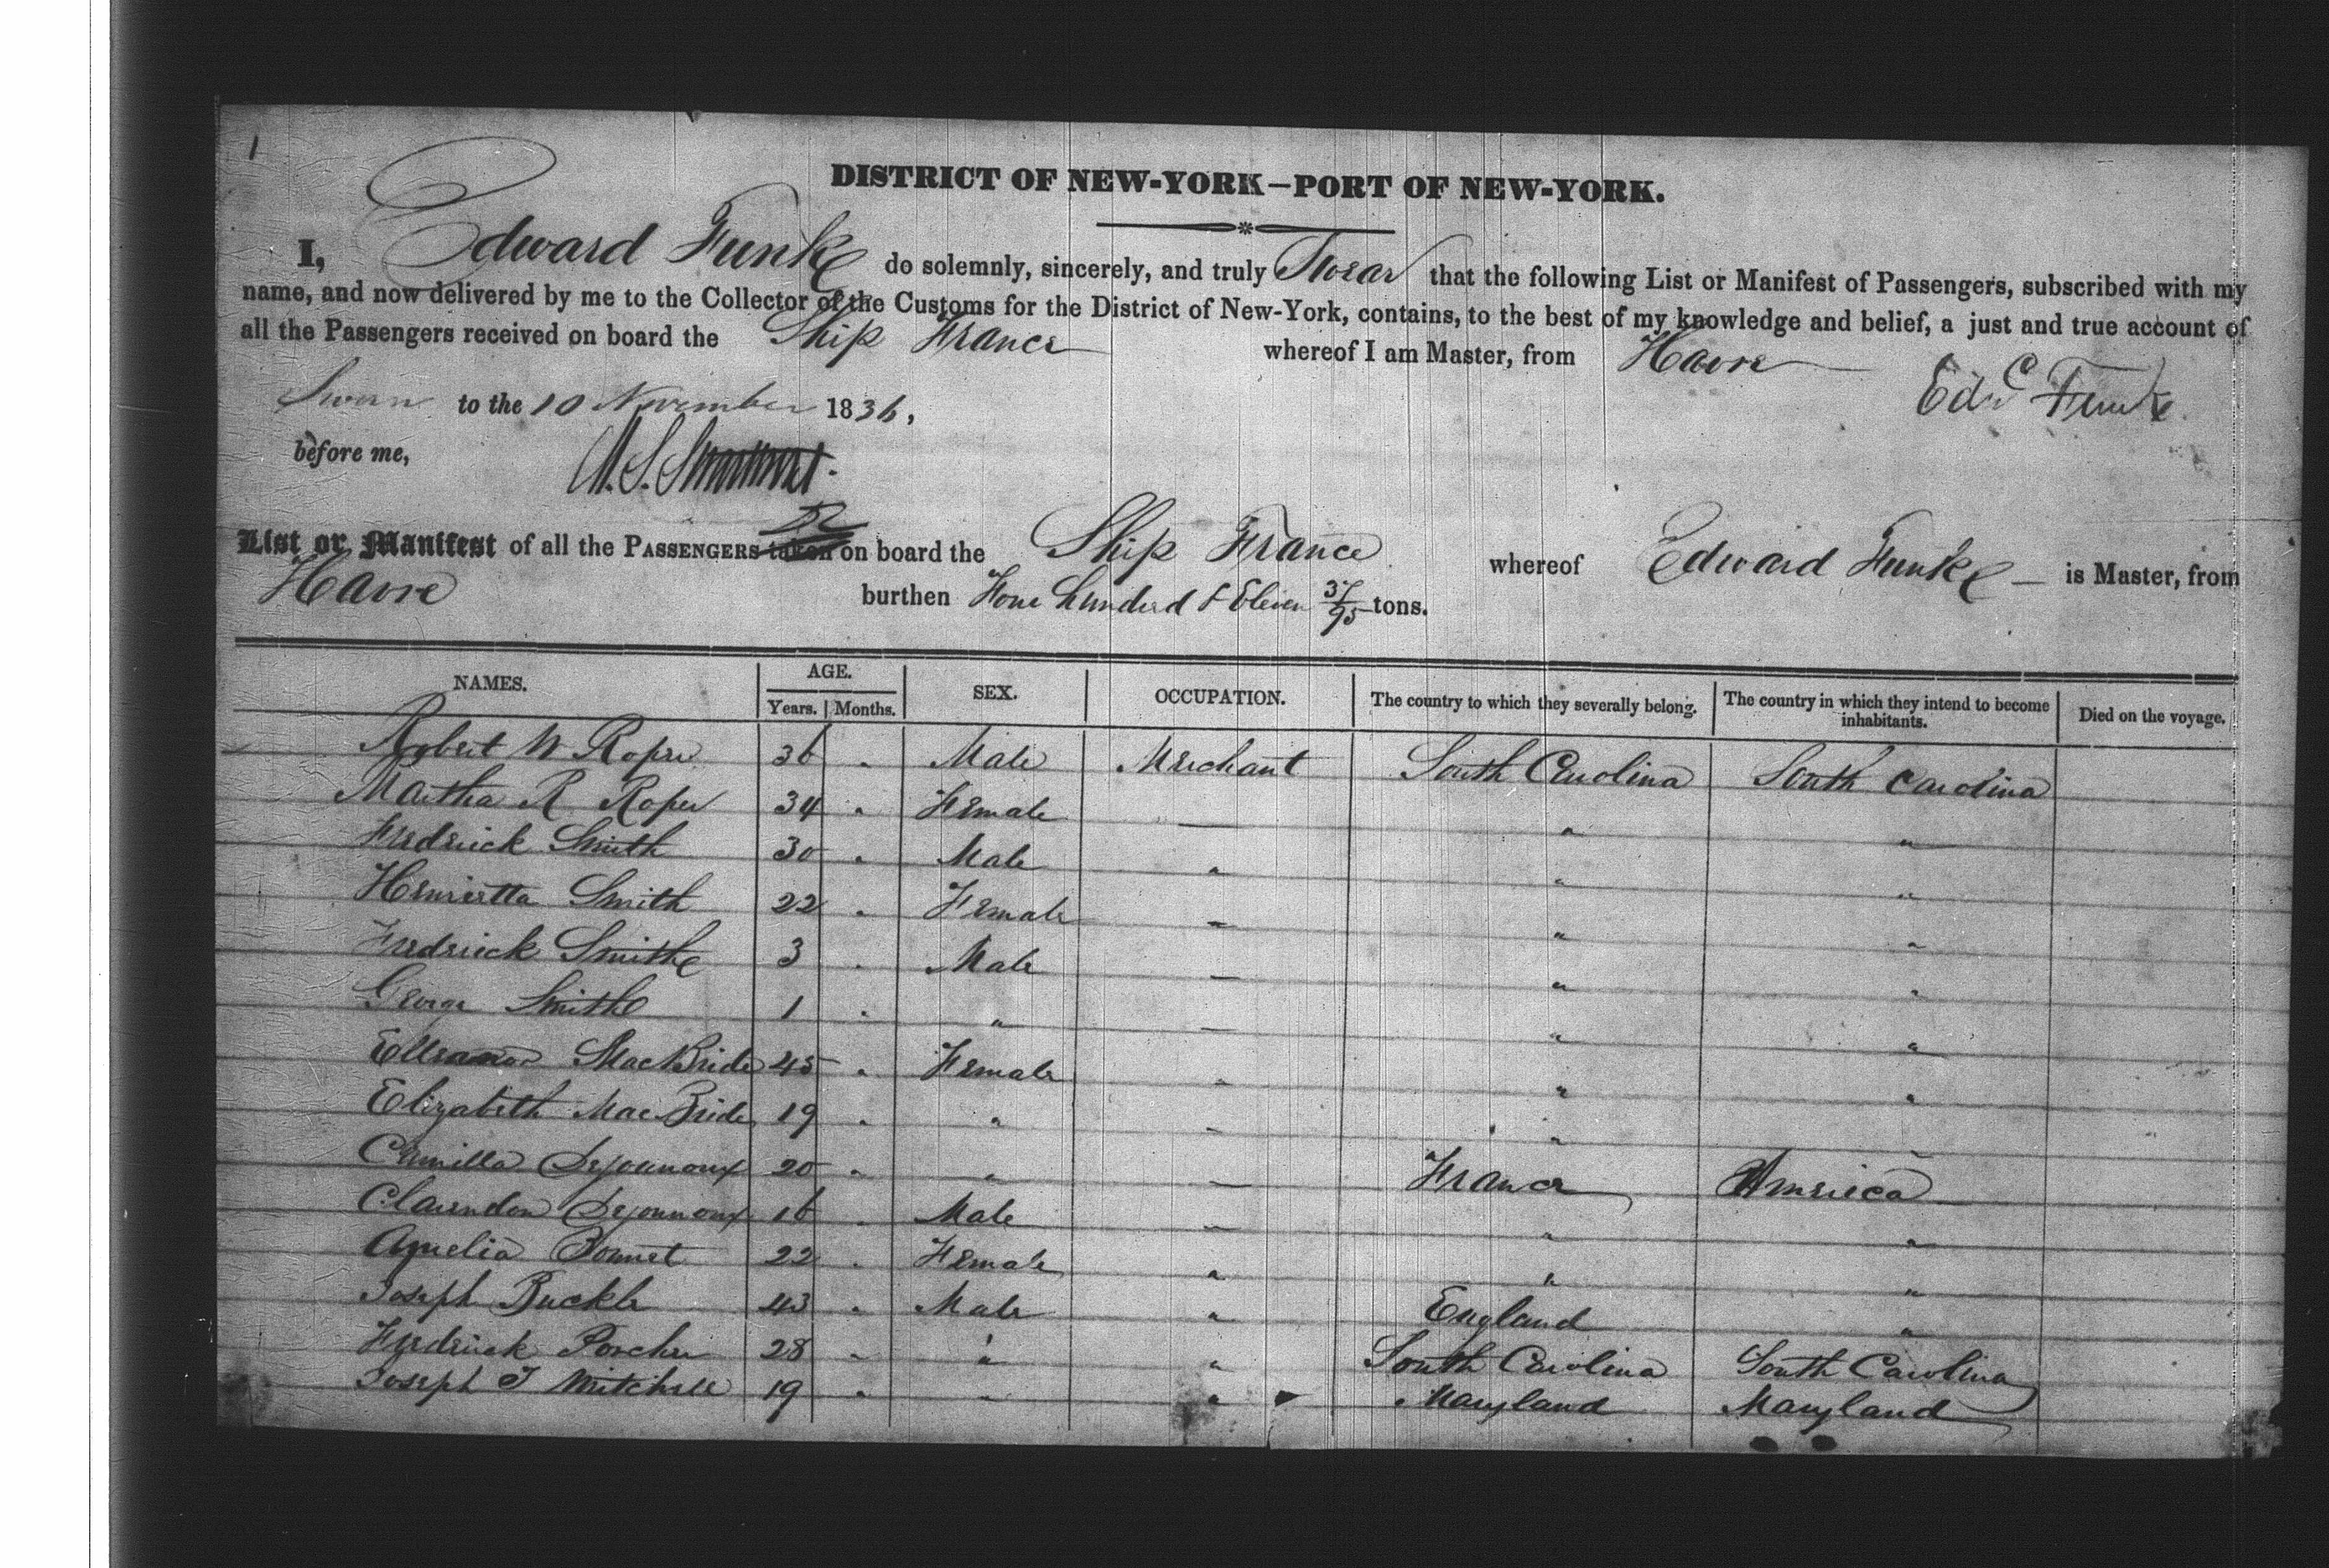 1
DISTRICT OF NEW-YORK—PORT OF NEW-YORK.
I, Edward Funke do solemnly, sincerely, and truly Swear that the following List or Manifest of Passengers, subscribed with my
name, and now delivered by me to the Collector of the Customs for the District of New-York, contains, to the best of my knowledge and belief, a just and true account of
all the Passengers received on board the Ship France whereof I am Master, from Havre
Sworn to the 10 November 1836,
Edw C Funke
before me,
List or Manifest of all the PASSENGERS taken on board the Ship France whereof Edward Funke — is Master, from
Havre burthen Four hundred & Eleven 37/95 tons.
NAMES. AGE. SEX. OCCUPATION. The country to which they severally belong. The country in which they intend to become inhabitants. Died on the voyage.
Years. Months.
Robert W Roper 36 " Male Merchant South Carolina South Carolina
Martha R Roper 34 " Female — " "
Fredrick Smith 30 " Male " " "
Henrietta Smith 22 " Female — " "
Fredrick Smith 3 " Male — " "
George Smith 1 " " — " "
Elleanor MacBride 45 " Female — " "
Elizabeth MacBride 19 " " — " "
Camilla Dejounoux 20 " " — France America
Clarendon Dejounoux 16 " Male — " "
Amelia Bonnet 22 " Female " " "
Joseph Buckle 43 " Male " England "
Fredrick Porcher 28 " " " South Carolina South Carolina
Joseph T Mitchell 19 " " " Maryland Maryland